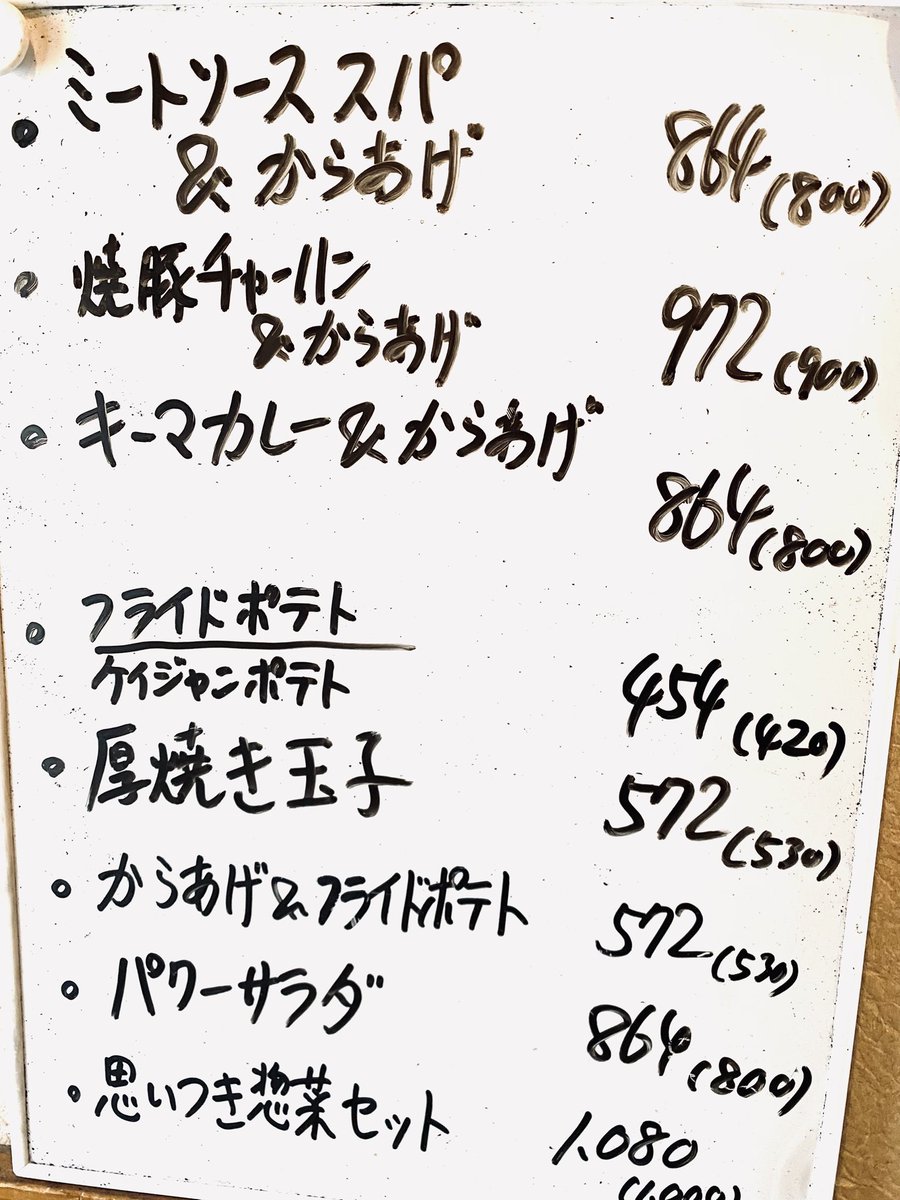 ・ミートソーススパ
＆からあげ 864(800)
・焼豚チャーハン
＆からあげ 972(900)
・キーマカレー＆からあげ
864(800)
・フライドポテト
ケイジャンポテト 454(420)
・厚焼き玉子 572(530)
・からあげ＆フライドポテト 572(530)
・パワーサラダ 864(800)
・思いつき惣菜セット 1.080